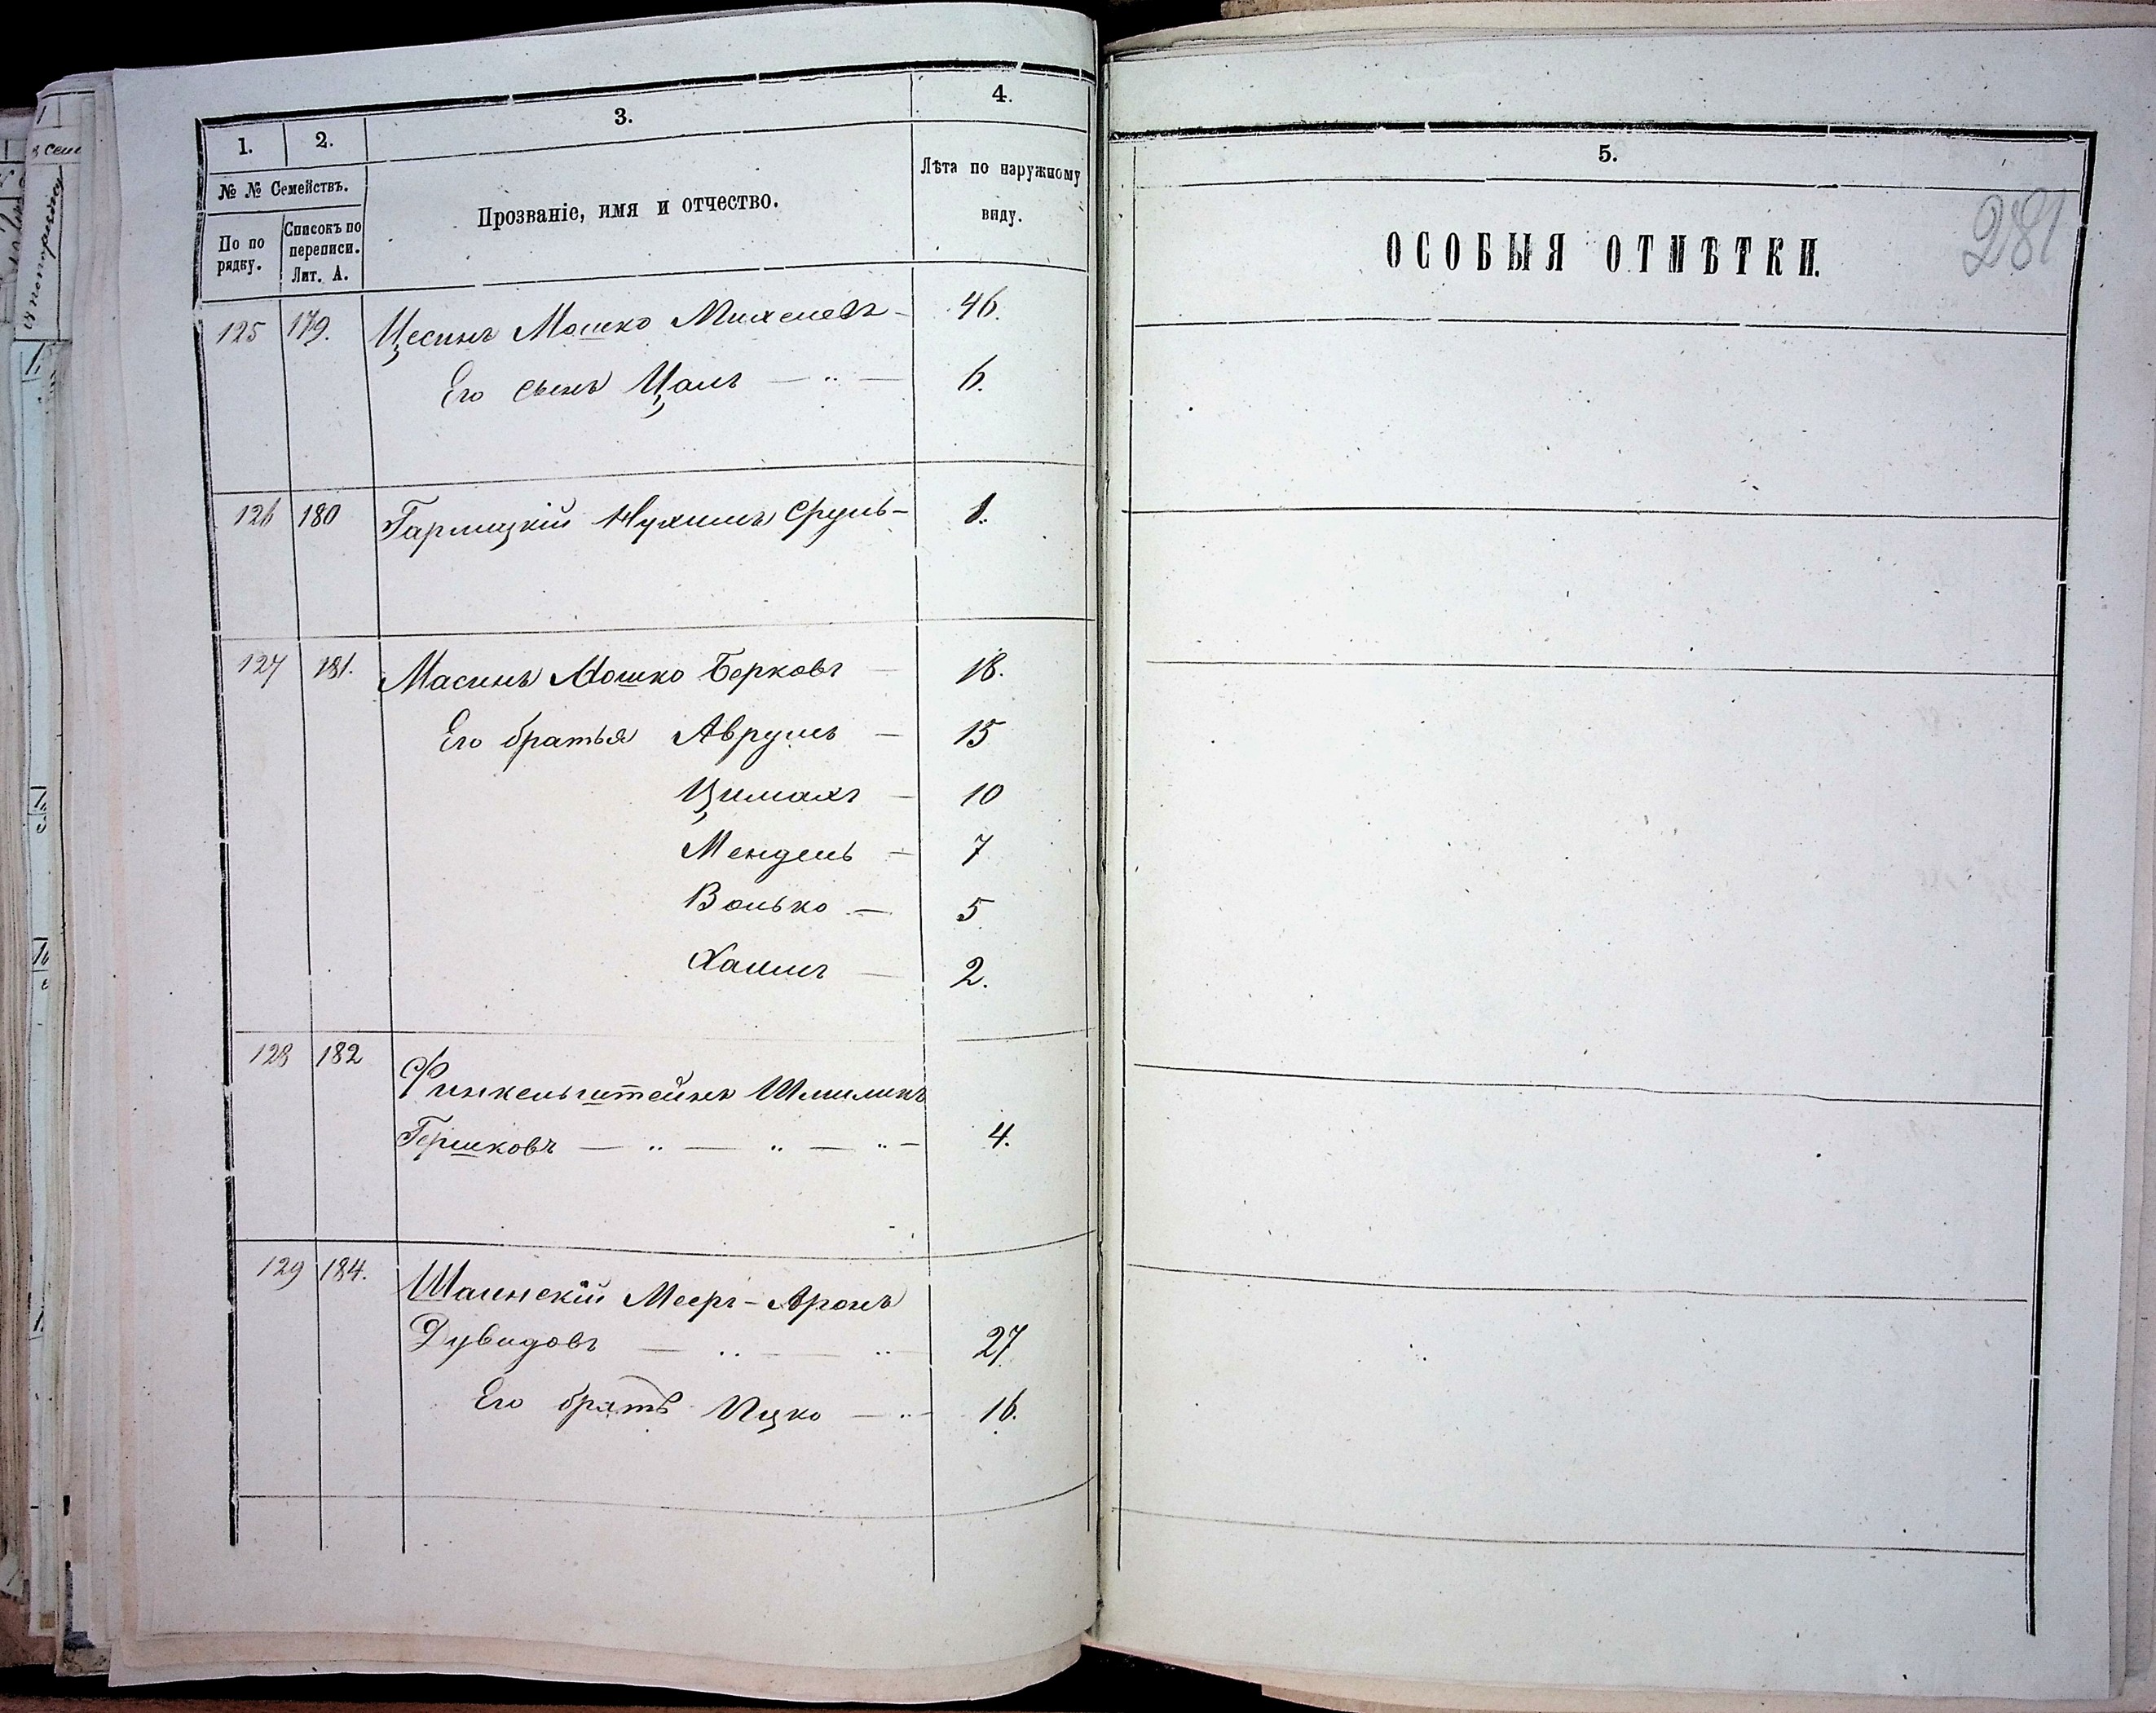 1.
2.
3.
4.
№ № Семействъ.
По по
рядку.
Списокъ по
переписи.
Лит. А.
Прозваніе, имя и отчество.
Лѣта по наружному
виду.
125 179. Цесинъ Мошко Михелевъ - 46.
Его сынъ Цалъ — " — 6.
126 180 Гарлицкій Нухимъ Сруль - 1.
127 181. Масинъ Мошко Берковъ — 18.
Его братья Аврумъ — 15
Цимахъ — 10
Мендель — 7
Волько — 5
Хаимъ — 2.
128 182 Финкельштейнъ Шмиликъ
Гершковъ — " — " — " — 4.
129 184. Шаинскій Мееръ-Аронъ
Дувидовъ — " — " 27
Его братъ Ицко — " — 16.
5.
ОСОБЫЯ ОТМѢТКИ.
281